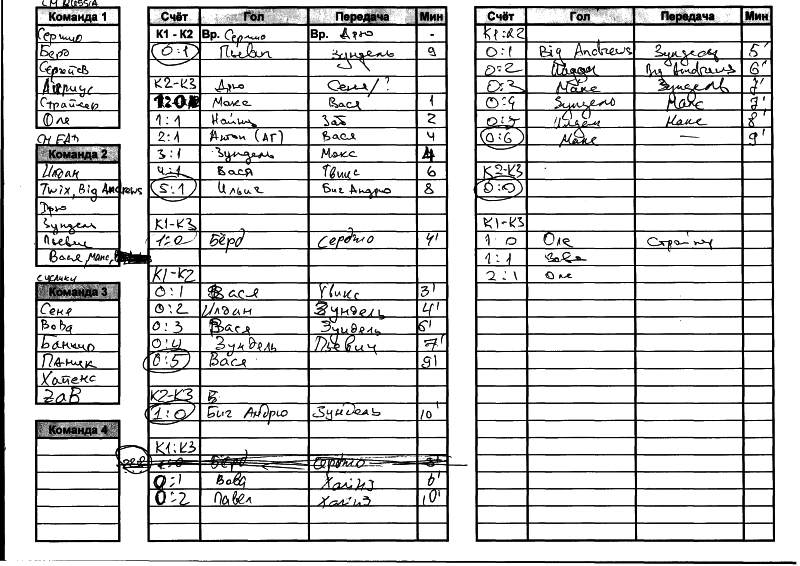 CM RUSSIA
Команда 1
Сержио
Берд
Страйкер
Оле
Команда 2
Илдан
Twix, Big Andrews
Дрю
Зундель
Пьевич
Вася, Макс,
Команда 3
Сеня
Вова
Банкир
Паник
Хопенс
Зав
Команда 4
Счёт Гол Передача Мин
К1 - К2 Вр. Сержио Вр. Дрю -
0:1 Зундель 9
К2-К3 Дрю Сеня/?
Макс Вася 1
1:1 Заб 2
2:1 Антон (АГ) Вася 4
3:1 Зундель Макс 4
4:1 Вася Твикс 6
5:1 Ильич Биг Андрю 8
К1-К3
1:0 Бёрд Сержио 4'
К1-К2
0:1 Вася Твикс 3'
0:2 Илдан Зундель 4'
0:3 Вася Зундель 6'
0:4 Зундель Пьевич 7'
0:5 Вася 9'
К2-К3
1:0 Биг Андрю Зундель 10'
К1:К3
Бёрд Сержио 3'
0:1 Вова 6'
0:2 Павел 10'
Счёт Гол Передача Мин
К1:К2
0:1 Big Andrews Зундель 5'
0:2 Big Andrews 6'
0:3 Макс Зундель 7'
0:4 Зундель Макс 7'
0:5 Илдан Макс 8'
0:6 Макс — 9'
К2-К3
0:0
К1-К3
1:0 Оле
1:1 Вова
2:1 Оле